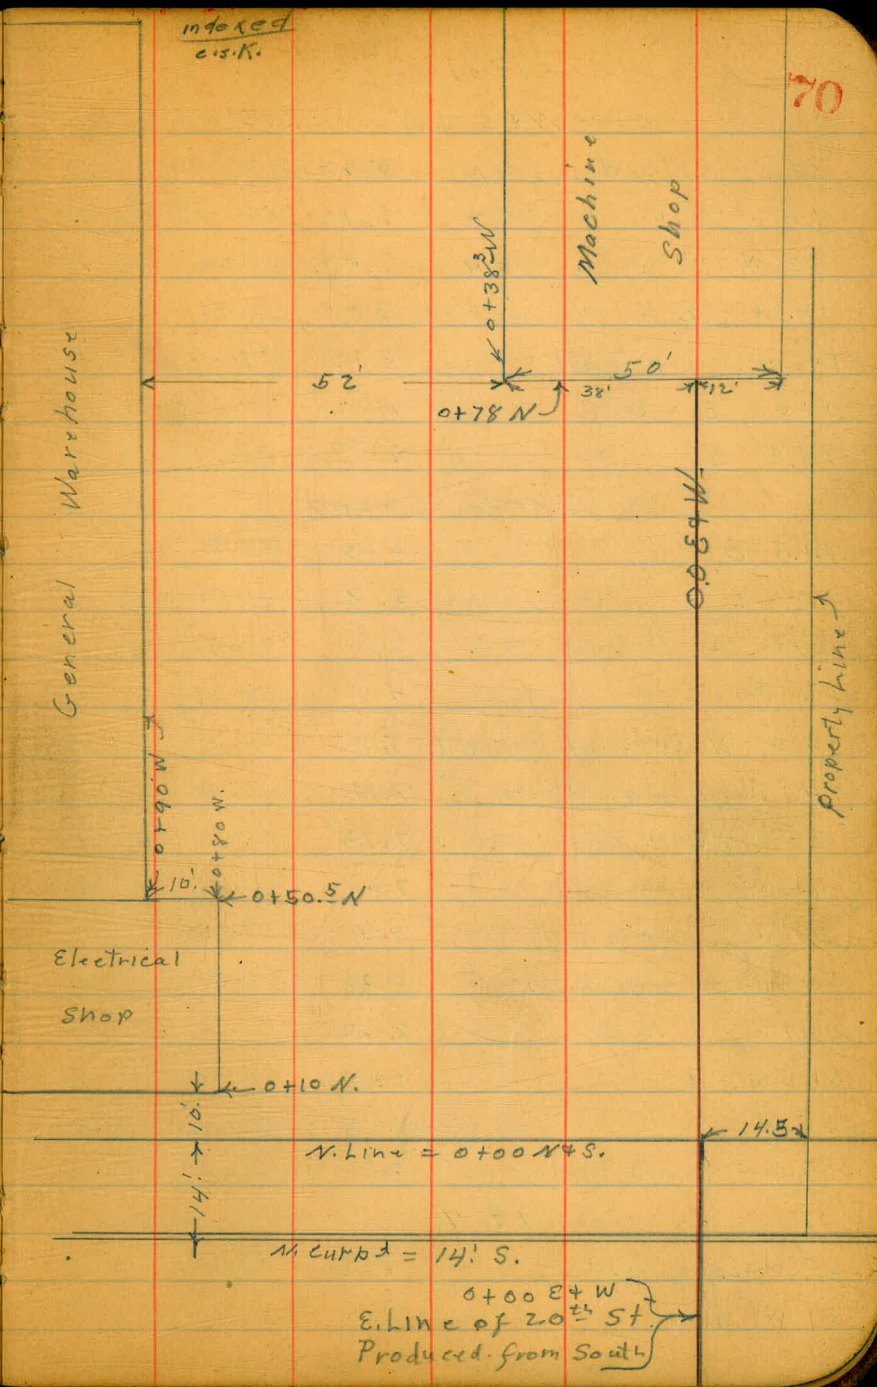 indexed
C.S.K.
70
Machine
Shop
0+38³W
General Warehouse
52'
50'
38'
12'
0+78 N
0.0 E+W
Property Line
0+90 W
0+80 W.
10'
0+50.5 N
Electrical
Shop
0+10 N.
10'
14.5
N. Line = 0+00 N & S.
14'
N. curb = 14' S.
0+00 E+W
E. Line of 20th St.
Produced from South